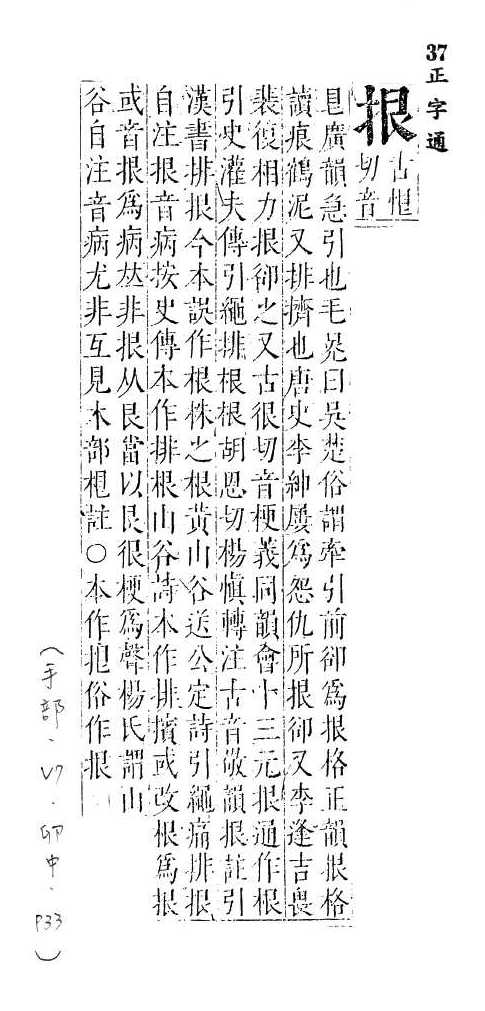 37正字通
㨒
古恒
切音
亘廣韻急引也毛晃曰吳楚俗謂牽引前卻爲㨒格正韻㨒格
讀痕鶴泥又排擠也唐史李紳屢爲怨仇所㨒卻又李逢吉畏
裴復相力㨒卻之又古很切音梗義同韻會十三元㨒通作根
引史灌夫傳引繩排根根胡恩切楊慎轉注古音敬韻㨒註引
漢書排㨒今本誤作根株之根黃山谷送公定詩引繩痛排㨒
自注㨒音病按史傳本作排根山谷詩本作排擯或改根爲㨒
或音㨒爲病𠀤非㨒从艮當以艮很梗爲聲楊氏謂山
谷自注音病尤非互見木部根註○本作㨒俗作㨒
(手部.V7.卯中.P33)